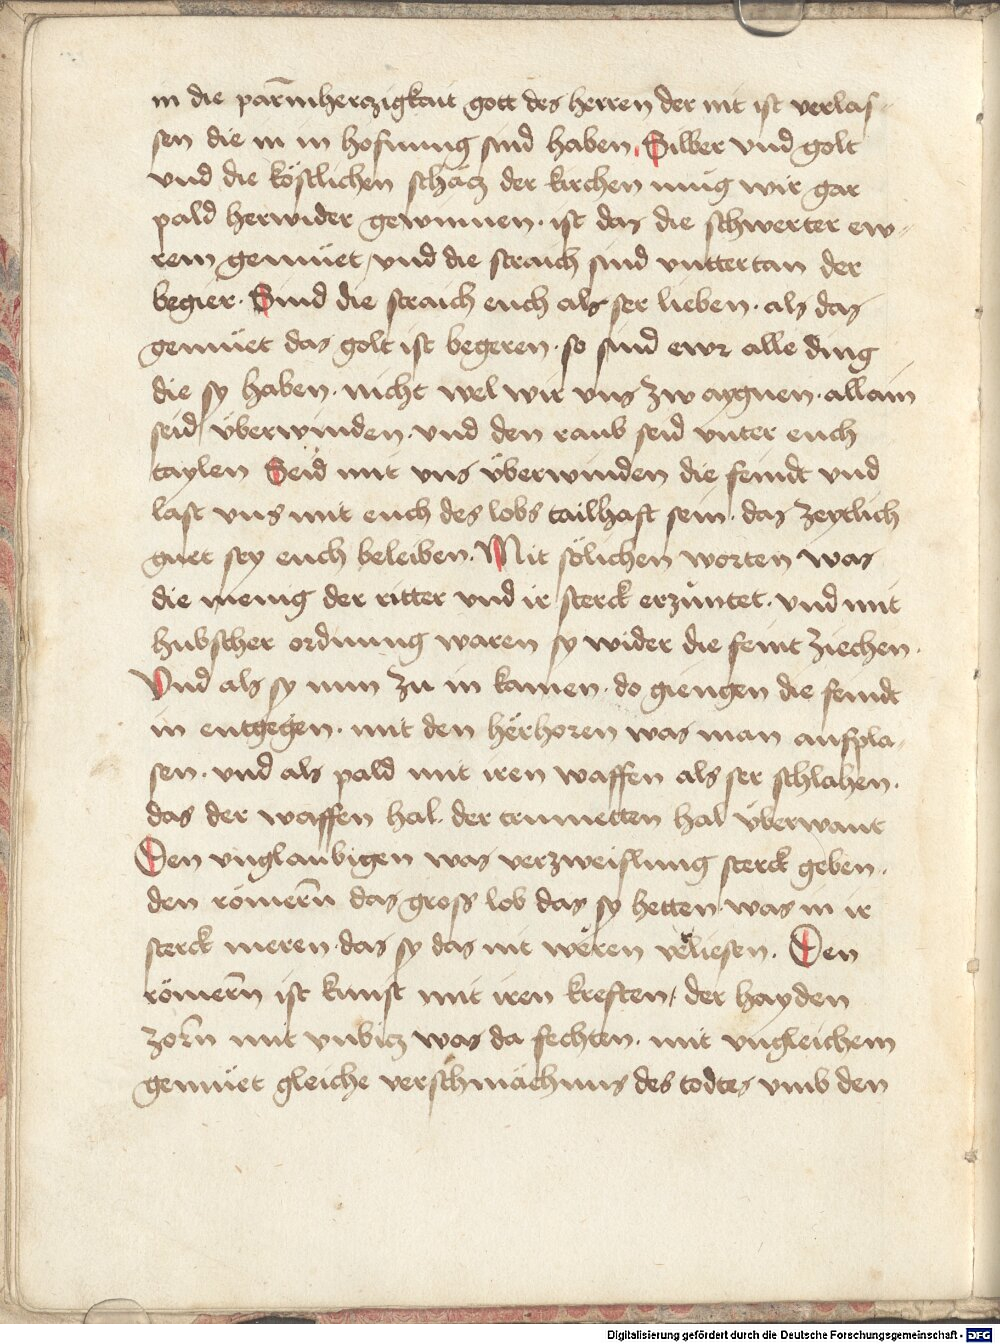 in die parmherczigkait gott des herren der nit ist verlas-
sen die in in hofnung sind haben. Silber vnd golt
vnd die köstlichen schätz der kirchen mug wir gar
pald herwider gewinnen. ist das die schwerter ew-
rem gemüet, vnd die straich sind vnttertan der
begier. Sind die straich euch als ser lieben. als das
gemüet das golt ist begeren. so sind ewr alle ding
die sy haben. nicht wel wir vns zw aygnen. allain
seid überwinden. vnd den raub seid vnter euch
taylen Seid mit vns überwinden die feindt vnd
last vns mit euch des lobs tailhaft sein. das zeytlich
guet sey euch beleiben. Mit sölichen worten was
die menig der ritter vnd ir sterck erzüntet. vnd mit
hubscher ordnung waren sy wider die feint ziechen.
Vnd als sy nun zu in kamen. do giengen die feindt
in entgegen. mit den hërhoren was man aufpla-
sen. vnd als pald mit iren waffen als ser schlahen.
das der waffen hal. der trumetten hal überwant
Den vnglaubigen was verzweiflung sterck geben.
den römern̄ das gross lob das sy hetten was in ir
sterck meren. das sy das nit wëren v̈eliesen. Den
römern̄ ist kunst mit iren kreften, der hayden
zorn̄ mit vnbitz was da fechten. mit vngleichem
gemüet gleiche verschmächnus des todtes vmb den
Digitalisierung gefördert durch die Deutsche Forschungsgemeinschaft - DFG